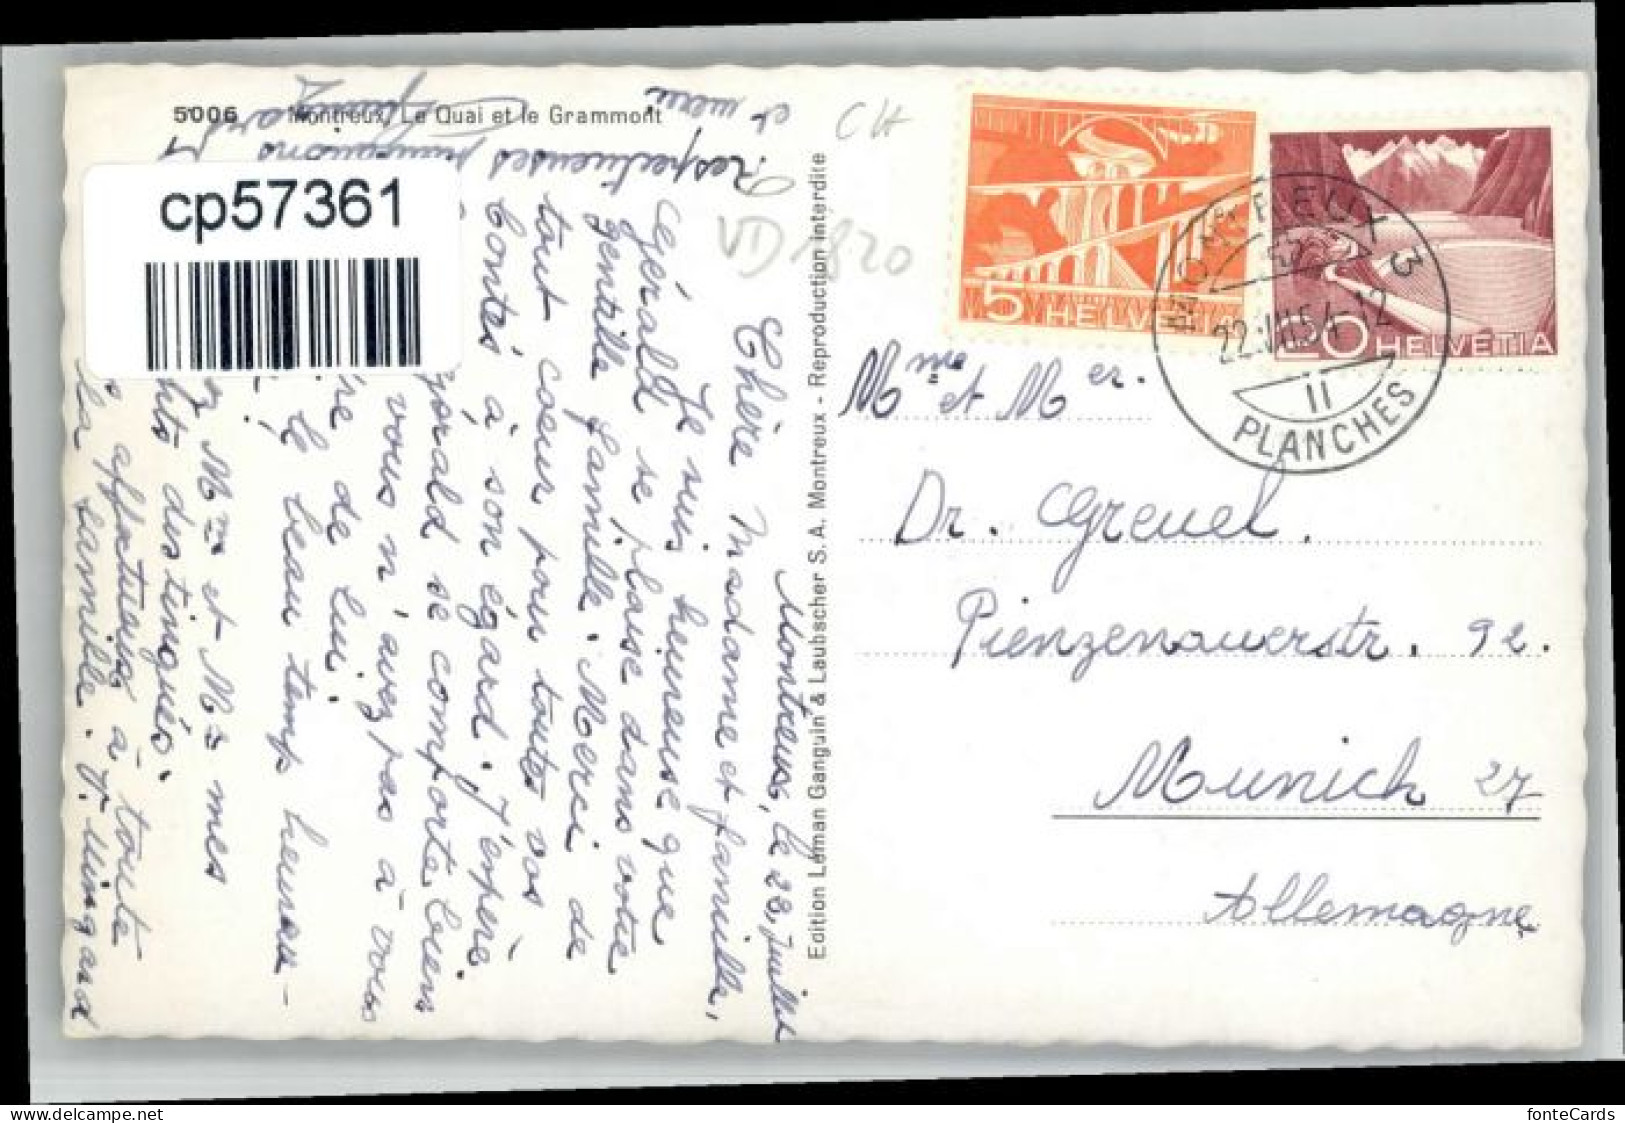 5006 Montreux, Le Quai et le Grammont
cp57361
Montreux, le 23, Juillet
Chère Madame et famille,
Je suis heureuse que
Gérald se plaise dans votre
gentille famille. Merci de
tout coeur pour toutes vos
bontés à son égard. J'espère
Gérald se comporte bien
vous n'avez pas à vous
re de lui.
le beau temps heureu-
z Mme et Mr mes
nts distingués.
affectueux à toute
la famille. J. Mingard
Respectueuses
et merci
Edition Léman Ganguin & Laubscher S. A. Montreux - Reproduction interdite
CH
VD 1820
5 HELVETIA
20 HELVETIA
MONTREUX 3
22.VII.54-12
II
PLANCHES
Mme et Mr.
Dr. Greuel.
Pienzenauerstr. 92.
Munich 27
Allemagne
fonteCards